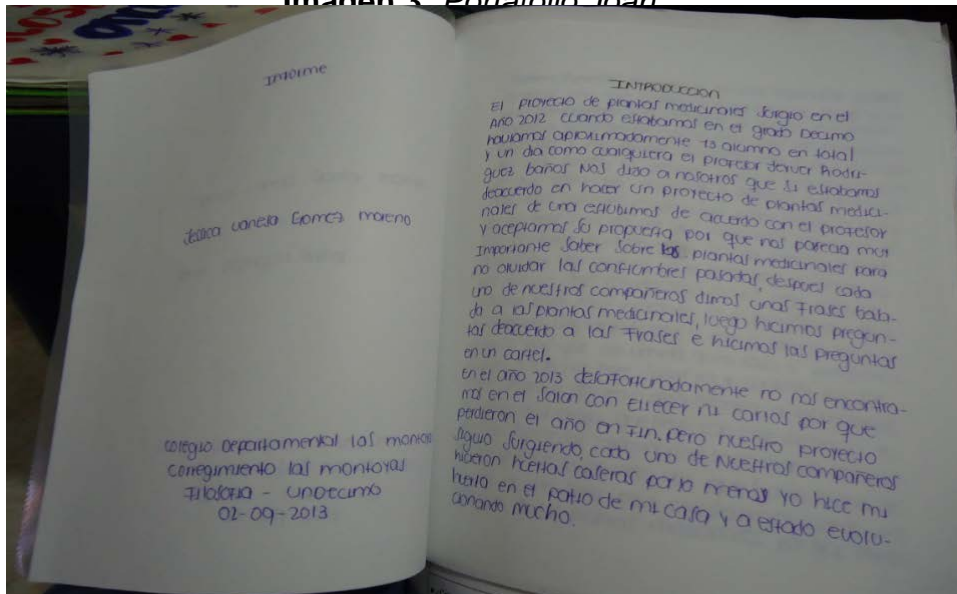 Imagen 3. Portafolio Joan
Informe
Jessica vanesa Gomez moreno
colegio departamental las montoya
corregimiento las montoyas
Filosofia - undecimo
02-09-2013
INTRODUCCION
El proyecto de plantas medicinales surgio en el
Año 2012 cuando estabamos en el grado Decimo
habiamos aproximadamente 13 alumno en total
y un dia como cualquiera el profesor Rodri-
guez baños Nos dijo a nosotros que si estabamos
deacuerdo en hacer un proyecto de plantas medici-
nales de una estubimos de acuerdo con el profesor
y aceptamos su propuesta por que nos parecia muy
Importante saber sobre las plantas medicinales para
no olvidar las constumbres pasadas, despues cada
uno de nuestros compañeros dimos unas Frases
a las plantas medicinales, luego hicimos pregun-
tas deacuerdo a las Frases e hicimos las preguntas
en un cartel.
En el año 2013 desafortunadamente no nos encontra-
mos en el salon con ni carlos por que
perdieron el año en Fin, pero nuestro proyecto
siguio surgiendo, cada uno de Nuestros compañeros
hicieron huertas caseras por lo menos yo hice mi
huerta en el patio de mi casa y a estado evolu-
cionando mucho.